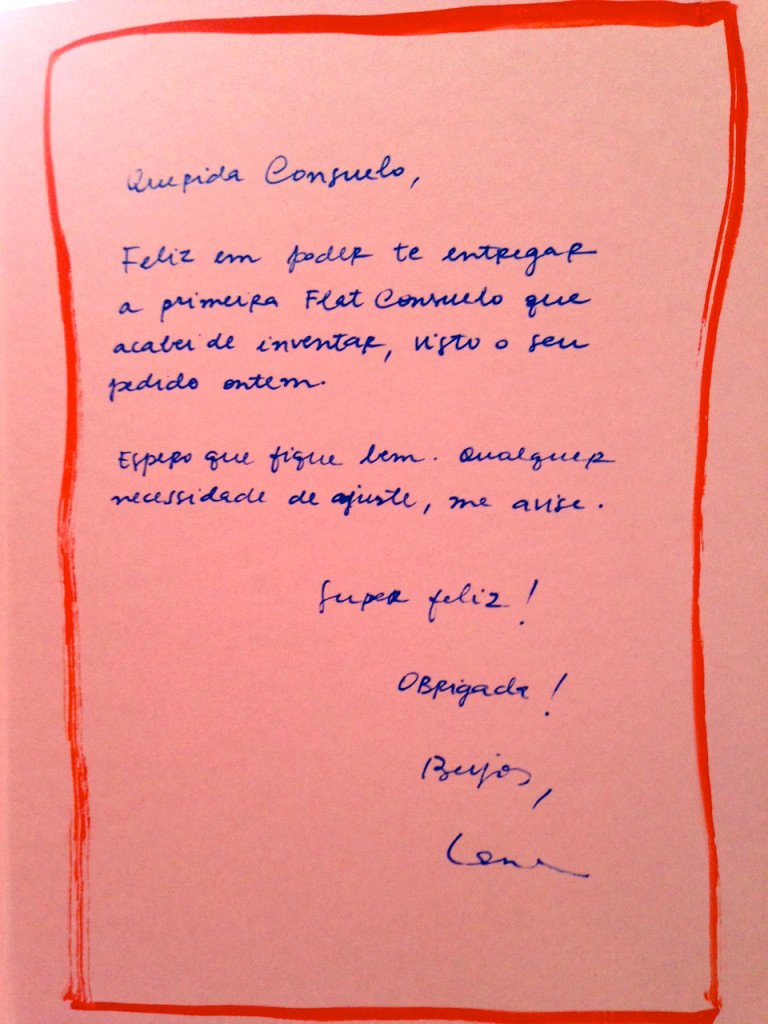 Querida Consuelo,
Feliz em poder te entregar
a primeira Flat Consuelo que
acabei de inventar, visto o seu
pedido ontem.
Espero que fique bem. Qualquer
necessidade de ajuste, me avise.
Super feliz!
Obrigada!
Beijos,